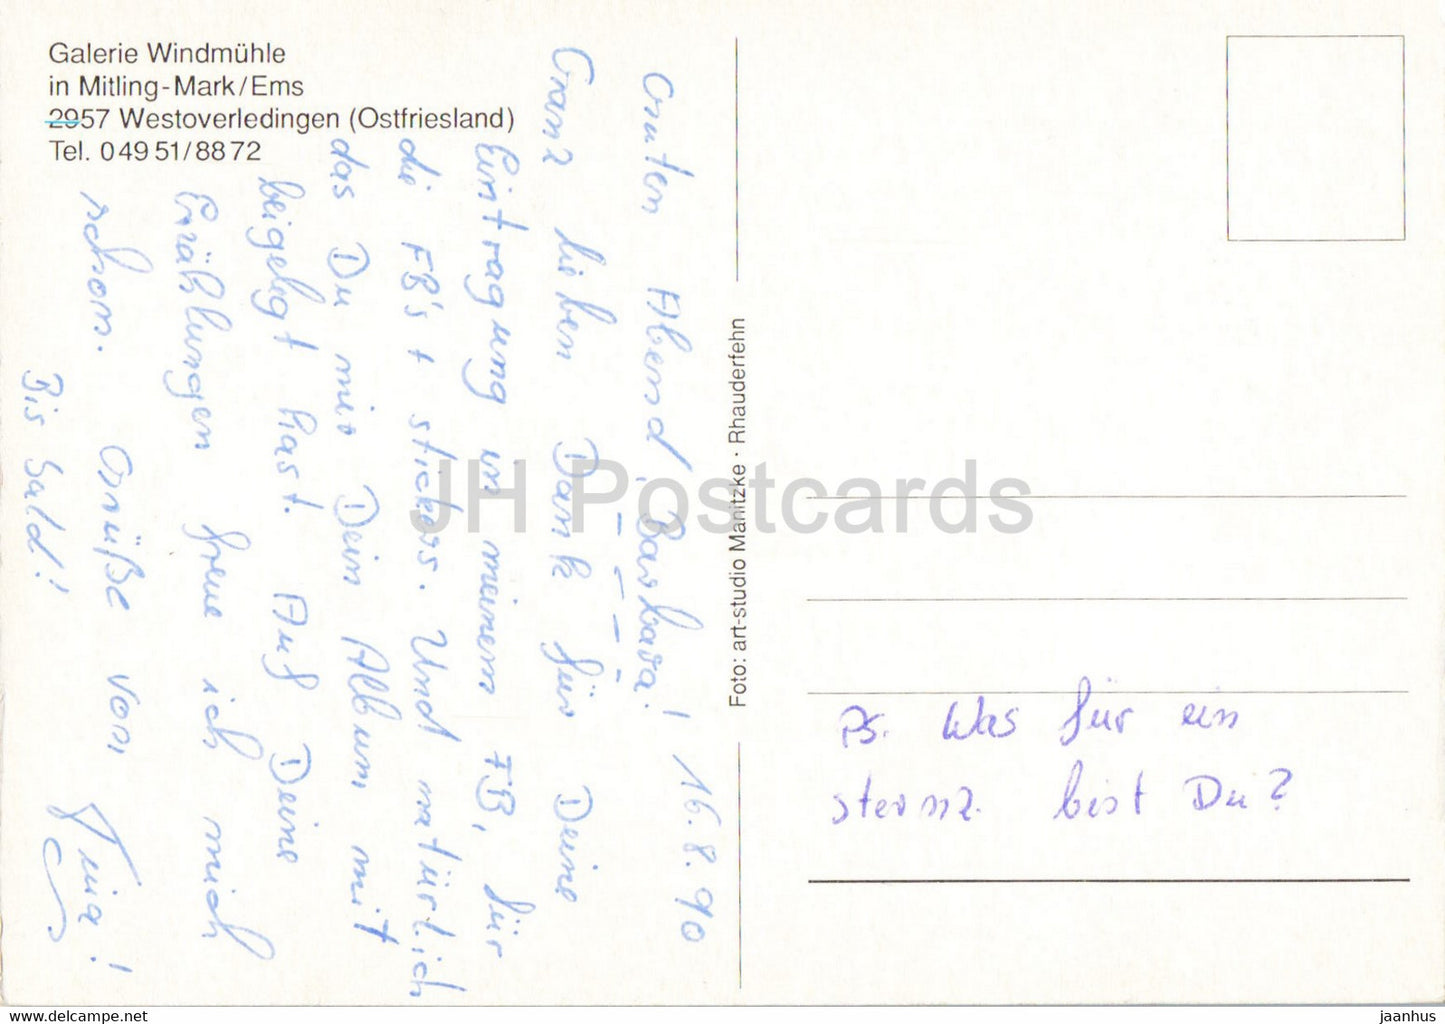 Galerie Windmühle
in Mitling-Mark/Ems
2957 Westoverledingen (Ostfriesland)
Tel. 0 49 51/88 72
16.8.90
Guten Abend, Barbara!
Ganz lieben Dank für Deine
Eintragung in meinem FB, für
die FB's + stickers. Und natürlich
das Du mir Dein Album mit
beigelegt hast. Auf Deine
Erzählungen freue ich mich
schon. Grüße von
Bis bald!
Foto: art-studio Manitzke · Rhauderfehn
Ps. Was für ein
sternz. bist Du?
JH Postcards
www.delcampe.net
jaanhus